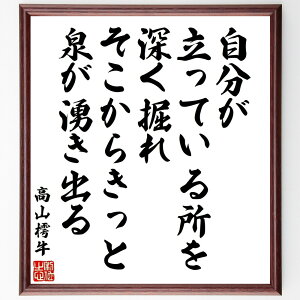 自分が
立っている所を
深く掘れ
そこからきっと
泉が湧き出る
高山樗牛